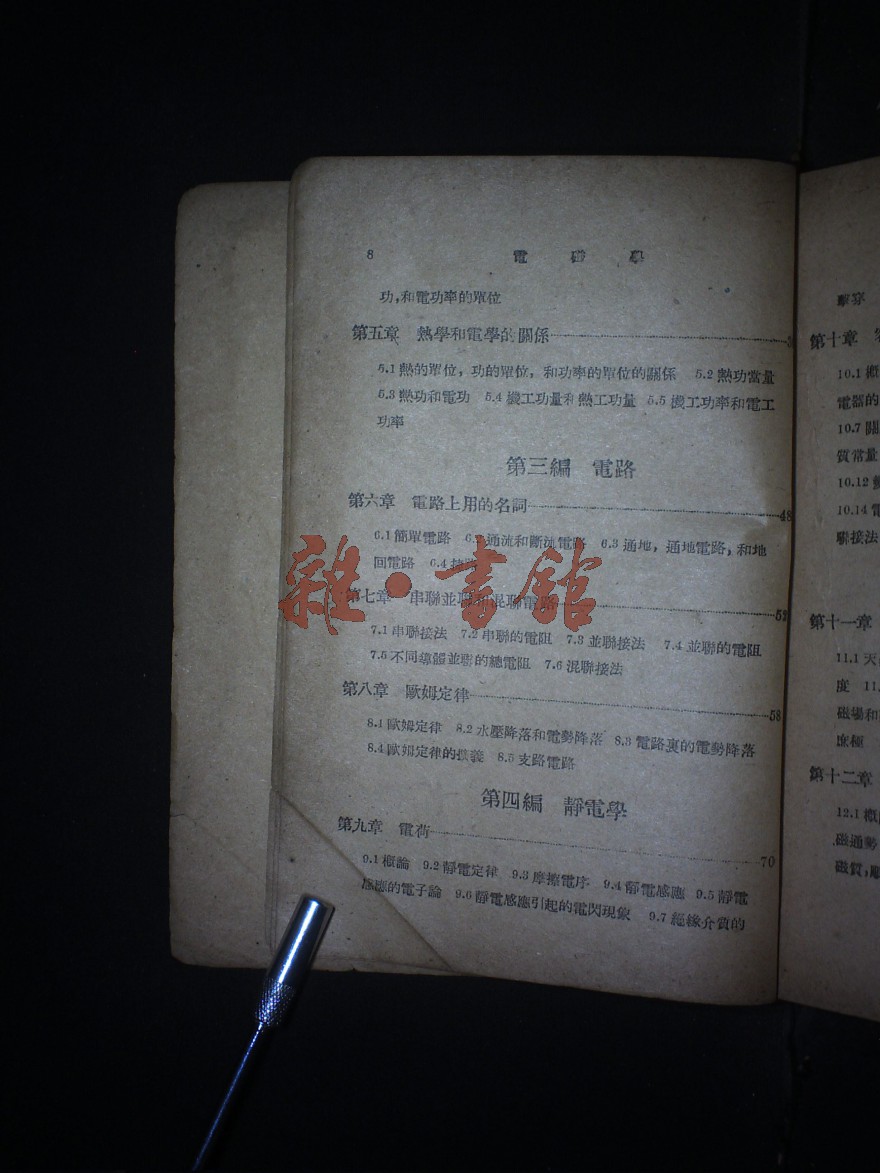 8 電 磁 學
功,和電功率的單位
第五章 熱學和電學的關係
5.1 熱的單位,功的單位,和功率的單位的關係 5.2 熱功當量
5.3 熱功和電功 5.4 機工功量和熱工功量 5.5 機工功率和電工
功率
第三編 電路
第六章 電路上用的名詞 48
6.1 簡單電路 6.2 通流和斷流電路 6.3 通地,通地電路,和地
回電路 6.4
第七章 串聯並聯和混聯電路 52
7.1 串聯接法 7.2 串聯的電阻 7.3 並聯接法 7.4 並聯的電阻
7.5 不同導體並聯的總電阻 7.6 混聯接法
第八章 歐姆定律 58
8.1 歐姆定律 8.2 水壓降落和電勢降落 8.3 電路裏的電勢降落
8.4 歐姆定律的廣義 8.5 支路電路
第四編 靜電學
第九章 電荷 70
9.1 概論 9.2 靜電定律 9.3 摩擦電序 9.4 靜電感應 9.5 靜電
感應的電子論 9.6 靜電感應引起的電閃現象 9.7 絕緣介質的
雜·書館
擊穿
第十章
10.1 概
電器的
10.7 關
質常量
10.12
10.14 電
聯接法
第十一章
11.1 天
度 11.
磁場和
庶極
第十二章
12.1 概
磁通勢
磁質,